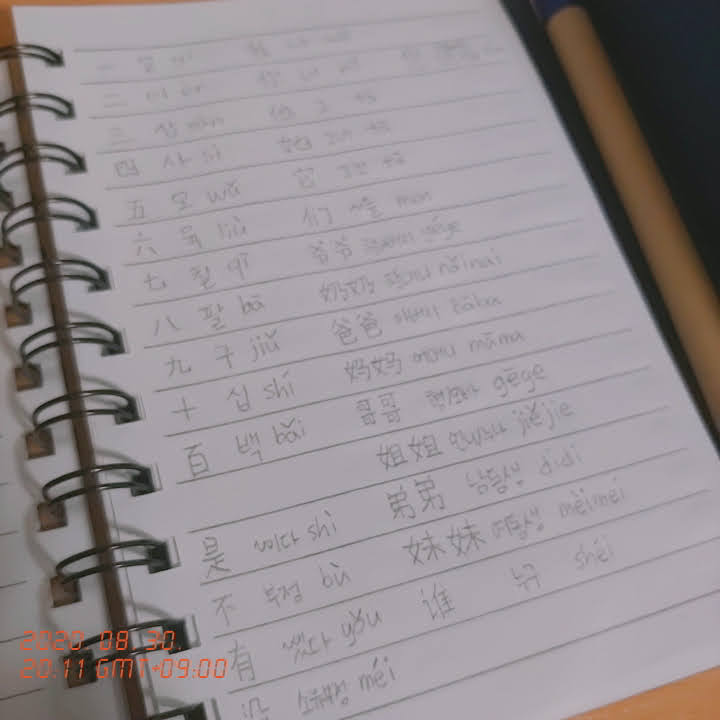 一 일 yī 我
二 이 èr 你
三 삼 sān 他 그 tā
四 사 sì 她 그녀 tā
五 오 wǔ 它 그것 tā
六 육 liù 们 ~들 men
七 칠 qī 爷爷 할아버지 yéye
八 팔 bā 奶奶 할머니 nǎinai
九 구 jiǔ 爸爸 아버지 bàba
十 십 shí 妈妈 어머니 māma
百 백 bǎi 哥哥 형,오빠 gēge
姐姐 언니,누나 jiějie
是 ~이다 shì 弟弟 남동생 dìdi
不 부정 bù 妹妹 여동생 mèimei
有 ~있다 yǒu 谁 누구 shéi
没 소유부정 méi
2020 08 30.
20:11 GMT+09:00